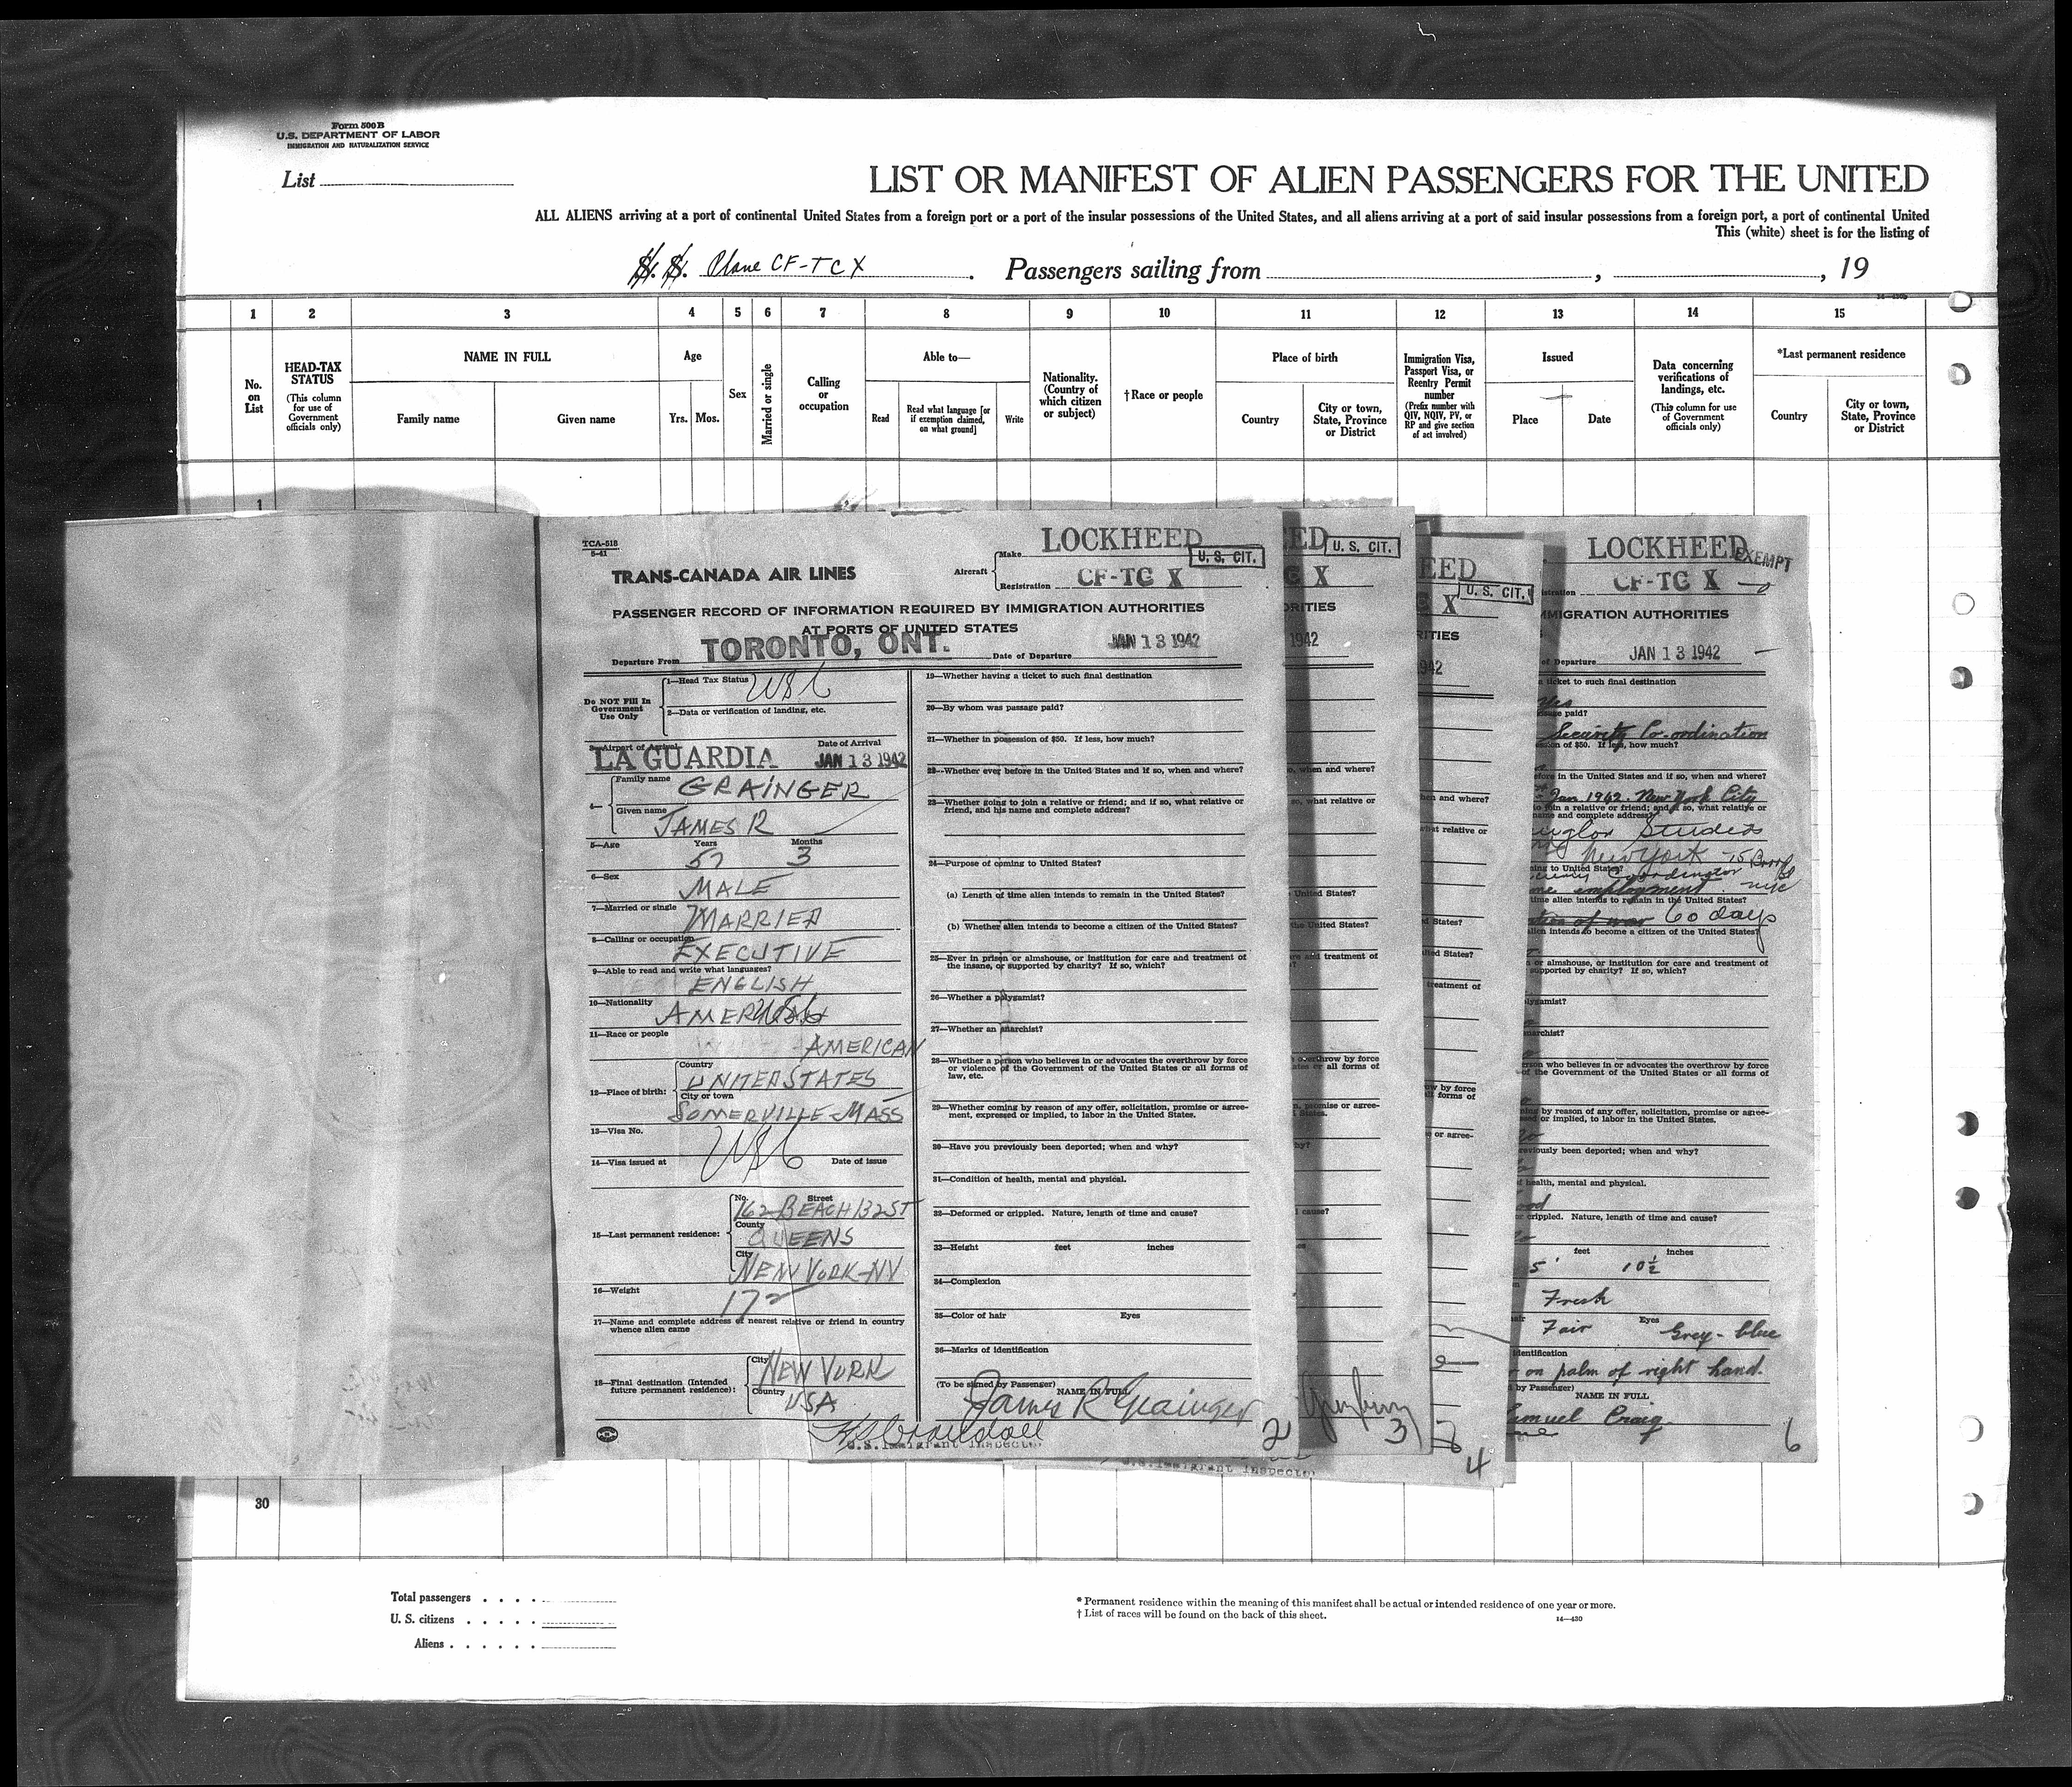 Form 500 B
U.S. DEPARTMENT OF LABOR
IMMIGRATION AND NATURALIZATION SERVICE
List
LIST OR MANIFEST OF ALIEN PASSENGERS FOR THE UNITED
ALL ALIENS arriving at a port of continental United States from a foreign port or a port of the insular possessions of the United States, and all aliens arriving at a port of said insular possessions from a foreign port, a port of continental United
This (white) sheet is for the listing of
S. S. Plane CF-TCX. Passengers sailing from , , 19
1 2 3 4 5 6 7 8 9 10 11 12 13 14 15
No. on List
HEAD-TAX STATUS
(This column for use of Government officials only)
NAME IN FULL
Family name Given name
Age
Yrs. Mos.
Sex
Married or single
Calling or occupation
Able to—
Read
Read what language [or if exemption claimed, on what ground]
Write
Nationality. (Country of which citizen or subject)
†Race or people
Place of birth
Country
City or town, State, Province or District
Immigration Visa, Passport Visa, or Reentry Permit number
(Prefix number with QIV, NQIV, PV, or RP and give section of act involved)
Issued
Place Date
Data concerning verifications of landings, etc.
(This column for use of Government officials only)
*Last permanent residence
Country
City or town, State, Province or District
1
TCA-518
5-41
TRANS-CANADA AIR LINES
Aircraft
Make LOCKHEED
U. S. CIT.
Registration CF-TC X
PASSENGER RECORD OF INFORMATION REQUIRED BY IMMIGRATION AUTHORITIES
AT PORTS OF UNITED STATES
Departure From TORONTO, ONT. Date of Departure JAN 13 1942
Do NOT Fill In Government Use Only
1—Head Tax Status USC
2—Data or verification of landing, etc.
3—Airport of Arrival Date of Arrival
LA GUARDIA JAN 13 1942
4—
Family name GRAINGER
Given name JAMES R
5—Age Years Months 3
6—Sex MALE
7—Married or single MARRIED
8—Calling or occupation EXECUTIVE
9—Able to read and write what languages?
ENGLISH
10—Nationality AMERICAN USC
11—Race or people AMERICAN
12—Place of birth:
Country UNITED STATES
City or town SOMERVILLE-MASS
13—Visa No. USC
14—Visa issued at Date of issue
15—Last permanent residence:
No. Street
162 BEACH 132 ST
County QUEENS
City NEW YORK-NY
16—Weight 172
17—Name and complete address of nearest relative or friend in country whence alien came
18—Final destination (Intended future permanent residence):
City NEW YORK
Country USA
19—Whether having a ticket to such final destination
20—By whom was passage paid?
21—Whether in possession of $50. If less, how much?
22—Whether ever before in the United States and if so, when and where?
23—Whether going to join a relative or friend; and if so, what relative or friend, and his name and complete address?
24—Purpose of coming to United States?
(a) Length of time alien intends to remain in the United States?
(b) Whether alien intends to become a citizen of the United States?
25—Ever in prison or almshouse, or institution for care and treatment of the insane, or supported by charity? If so, which?
26—Whether a polygamist?
27—Whether an anarchist?
28—Whether a person who believes in or advocates the overthrow by force or violence of the Government of the United States or all forms of law, etc.
29—Whether coming by reason of any offer, solicitation, promise or agreement, expressed or implied, to labor in the United States.
30—Have you previously been deported; when and why?
31—Condition of health, mental and physical.
32—Deformed or crippled. Nature, length of time and cause?
33—Height feet inches
34—Complexion
35—Color of hair Eyes
36—Marks of identification
(To be signed by Passenger) NAME IN FULL
James R Grainger
U.S. Immigrant Inspector
2
U. S. CIT.
3
U. S. CIT.
4
U.S. Immigrant Inspector
LOCKHEED
EXEMPT
CF-TC X
IMMIGRATION AUTHORITIES
of Departure JAN 13 1942
a ticket to such final destination
Yes
Security Co-ordination
of $50. If less, how much?
before in the United States and if so, when and where?
Jan. 1942. New York City
to join a relative or friend; and if so, what relative or
name and complete address?
Studios
New York
to United States?
Coordinator
employment. NYC
time alien intends to remain in the United States?
60 days
alien intends to become a citizen of the United States?
or almshouse, or institution for care and treatment of
supported by charity? If so, which?
polygamist?
anarchist?
person who believes in or advocates the overthrow by force
of the Government of the United States or all forms of
by reason of any offer, solicitation, promise or agree-
or implied, to labor in the United States.
previously been deported; when and why?
of health, mental and physical.
or crippled. Nature, length of time and cause?
feet inches
5' 10½
Fresh
Fair Eyes Grey-blue
identification
on palm of right hand.
by Passenger)
NAME IN FULL
Samuel Craig
6
30
Total passengers
U. S. citizens
Aliens
* Permanent residence within the meaning of this manifest shall be actual or intended residence of one year or more.
† List of races will be found on the back of this sheet.
14—430